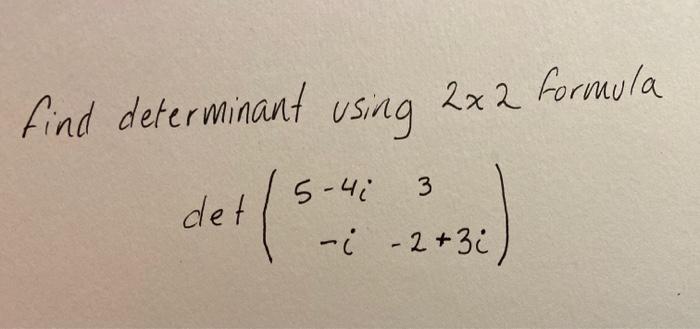 find determinant using 2x2 formula
det ( 5-4i 3
-i -2+3i )